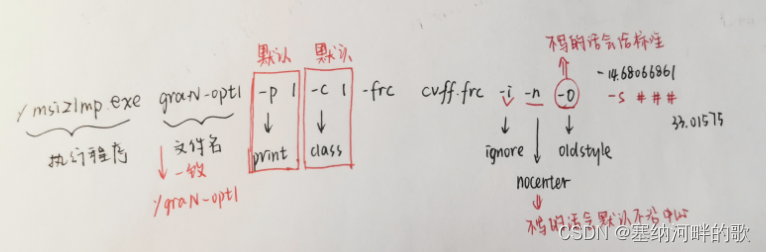 不写的话会给标注
默认 默认
-14.68066861
./msi2lmp.exe graN-opt1 -p 1 -c 1 -frc cvff.frc -i -n -o
-s # # #
33.01575
执行程序 文件名 print class ignore oldstyle
一致
nocenter
./graN-opt1
不写的话会默认不沿中心
CSDN @塞纳河畔的歌